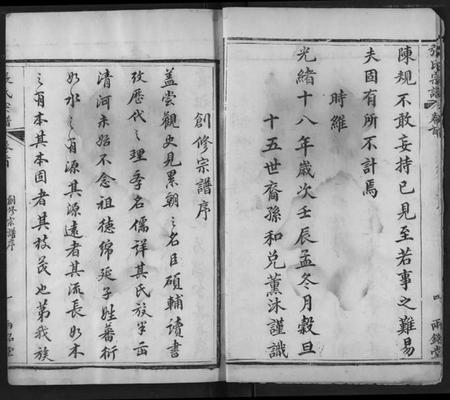 陳規不敢妄持已見至若事之難易
夫固有所不計焉
時維
光緒十八年歲次壬辰孟冬月穀旦
十五世裔孫和兌薰沐謹識
創修宗譜序
蓋嘗觀史見累朝之名臣碩輔讀書
攷歷代之理學名儒詳其氏族半出
清河未始不念祖德綿延子姓蕃衍
如水之有源其源遠者其流長如木
之有本其本固者其枝茂也第我族
創修宗譜序
一